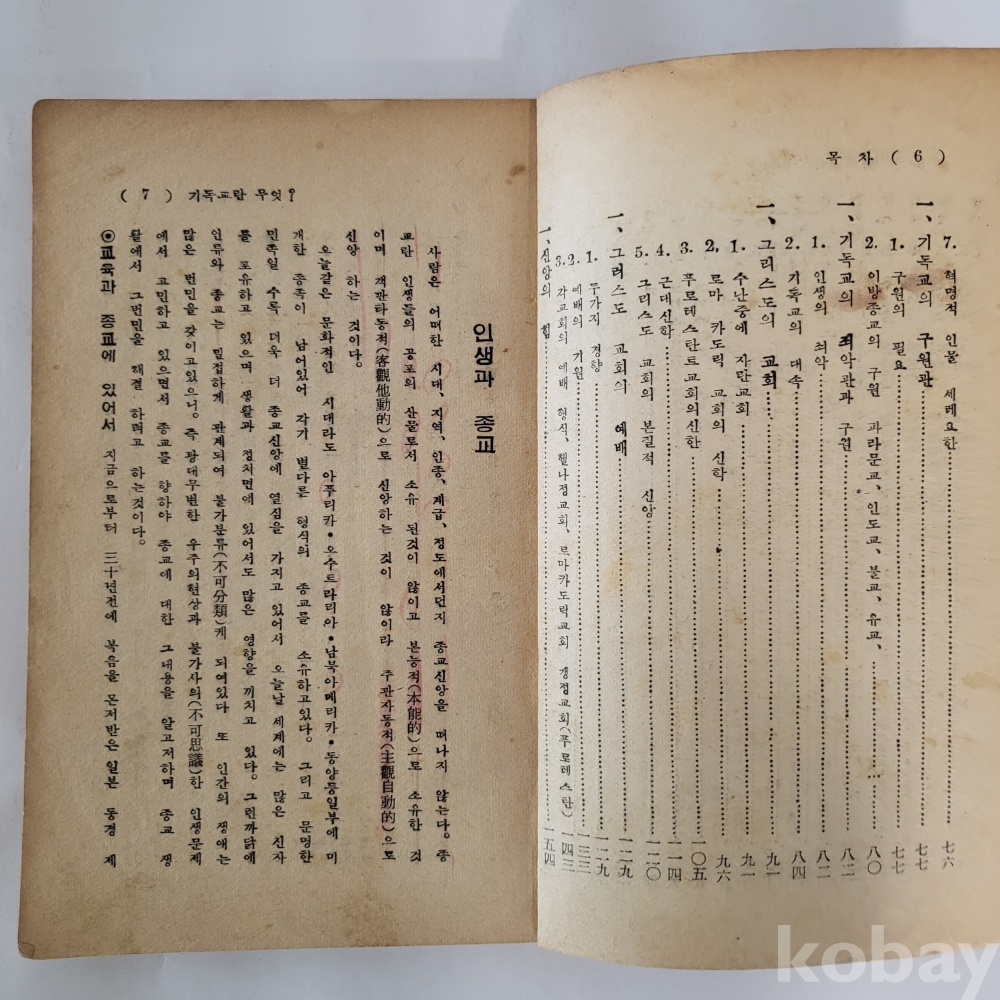 목 차 ( 6 )
7. 혁명적 인물 세레요한 ………… 七六
一、 기독교의 구원관 ………… 七七
1. 구원의 필요 ………… 七七
2. 이방종교의 구원 파라문교、인도교、불교、유교、… 八〇
一、 기독교의 죄악관과 구원 ………… 八二
1. 인생의 죄악 ………… 八二
2. 기독교의 대속 ………… 八四
一、 그리스도의 교회 ………… 九一
1. 수난중에 자란교회 ………… 九一
2. 로마 카도릭 교회의 신학 ………… 九六
3. 푸로테스탄트교회의신한 ………… 一〇五
4. 근데신학 ………… 一一四
5. 그리스도 교회의 본질적 신앙 ………… 一二〇
一、 그려스도 교회의 예배 ………… 一二九
1. 두가지 경향 ………… 一二九
2. 예배의 기원 ………… 一三三
3. 각교회의 예배 형식、헬나정교회、르마카도릭교회 갱정교회(푸로테스탄) 一四三
一、신앙의 힘 ………… 一五四
( 7 ) 기독교란 무엇?
인생과 종교
사람은 어떠한 시대、지역、인종、계급、정도에서던지 종교신앙을 떠나지 않는다。종
교란 인생들의 공포의 산물로서 소유 된것이 않이고 본능적(本能的)으로 소유한 것
이며 객관타동적(客觀他動的)으로 신앙하는 것이 않이라 주관자동적(主觀自動的)으로
신앙 하는 것이다。
오늘같은 문화적인 시대라도 아푸리카•오수트라리아•남북아메리카•동양등일부에 미
개한 종족이 남어있어 각기 별다른 형식의 종교를 소유하고있다。그리고 문명한
민족일 수록 더욱 더 종교신앙에 열심을 가지고 있어서 오늘날 세계에는 많은 신자
를 포유하고 있으며 생활과 정치면에 있어서도 많은 영향을 끼치고 있다。그런까닭에
인류와 종교는 밀접하게 관계되여 불가분류(不可分類)케 되여있다 또 인간의 생애는
많은 번민을 갖이고있으니。즉 광대무변한 우주의현상과 불가사의(不可思議)한 인생문제
에서 고민하고 있으면서 종교를 향하야 종교에 대한 그내용을 알고저하며 종교 생
활에서 그번민을 해결 하려고 하는것이다。
◎교육과 종교에 있어서 지금으로부터 三十년전에 복음을 몬저받은 일본 동경 제
kobay